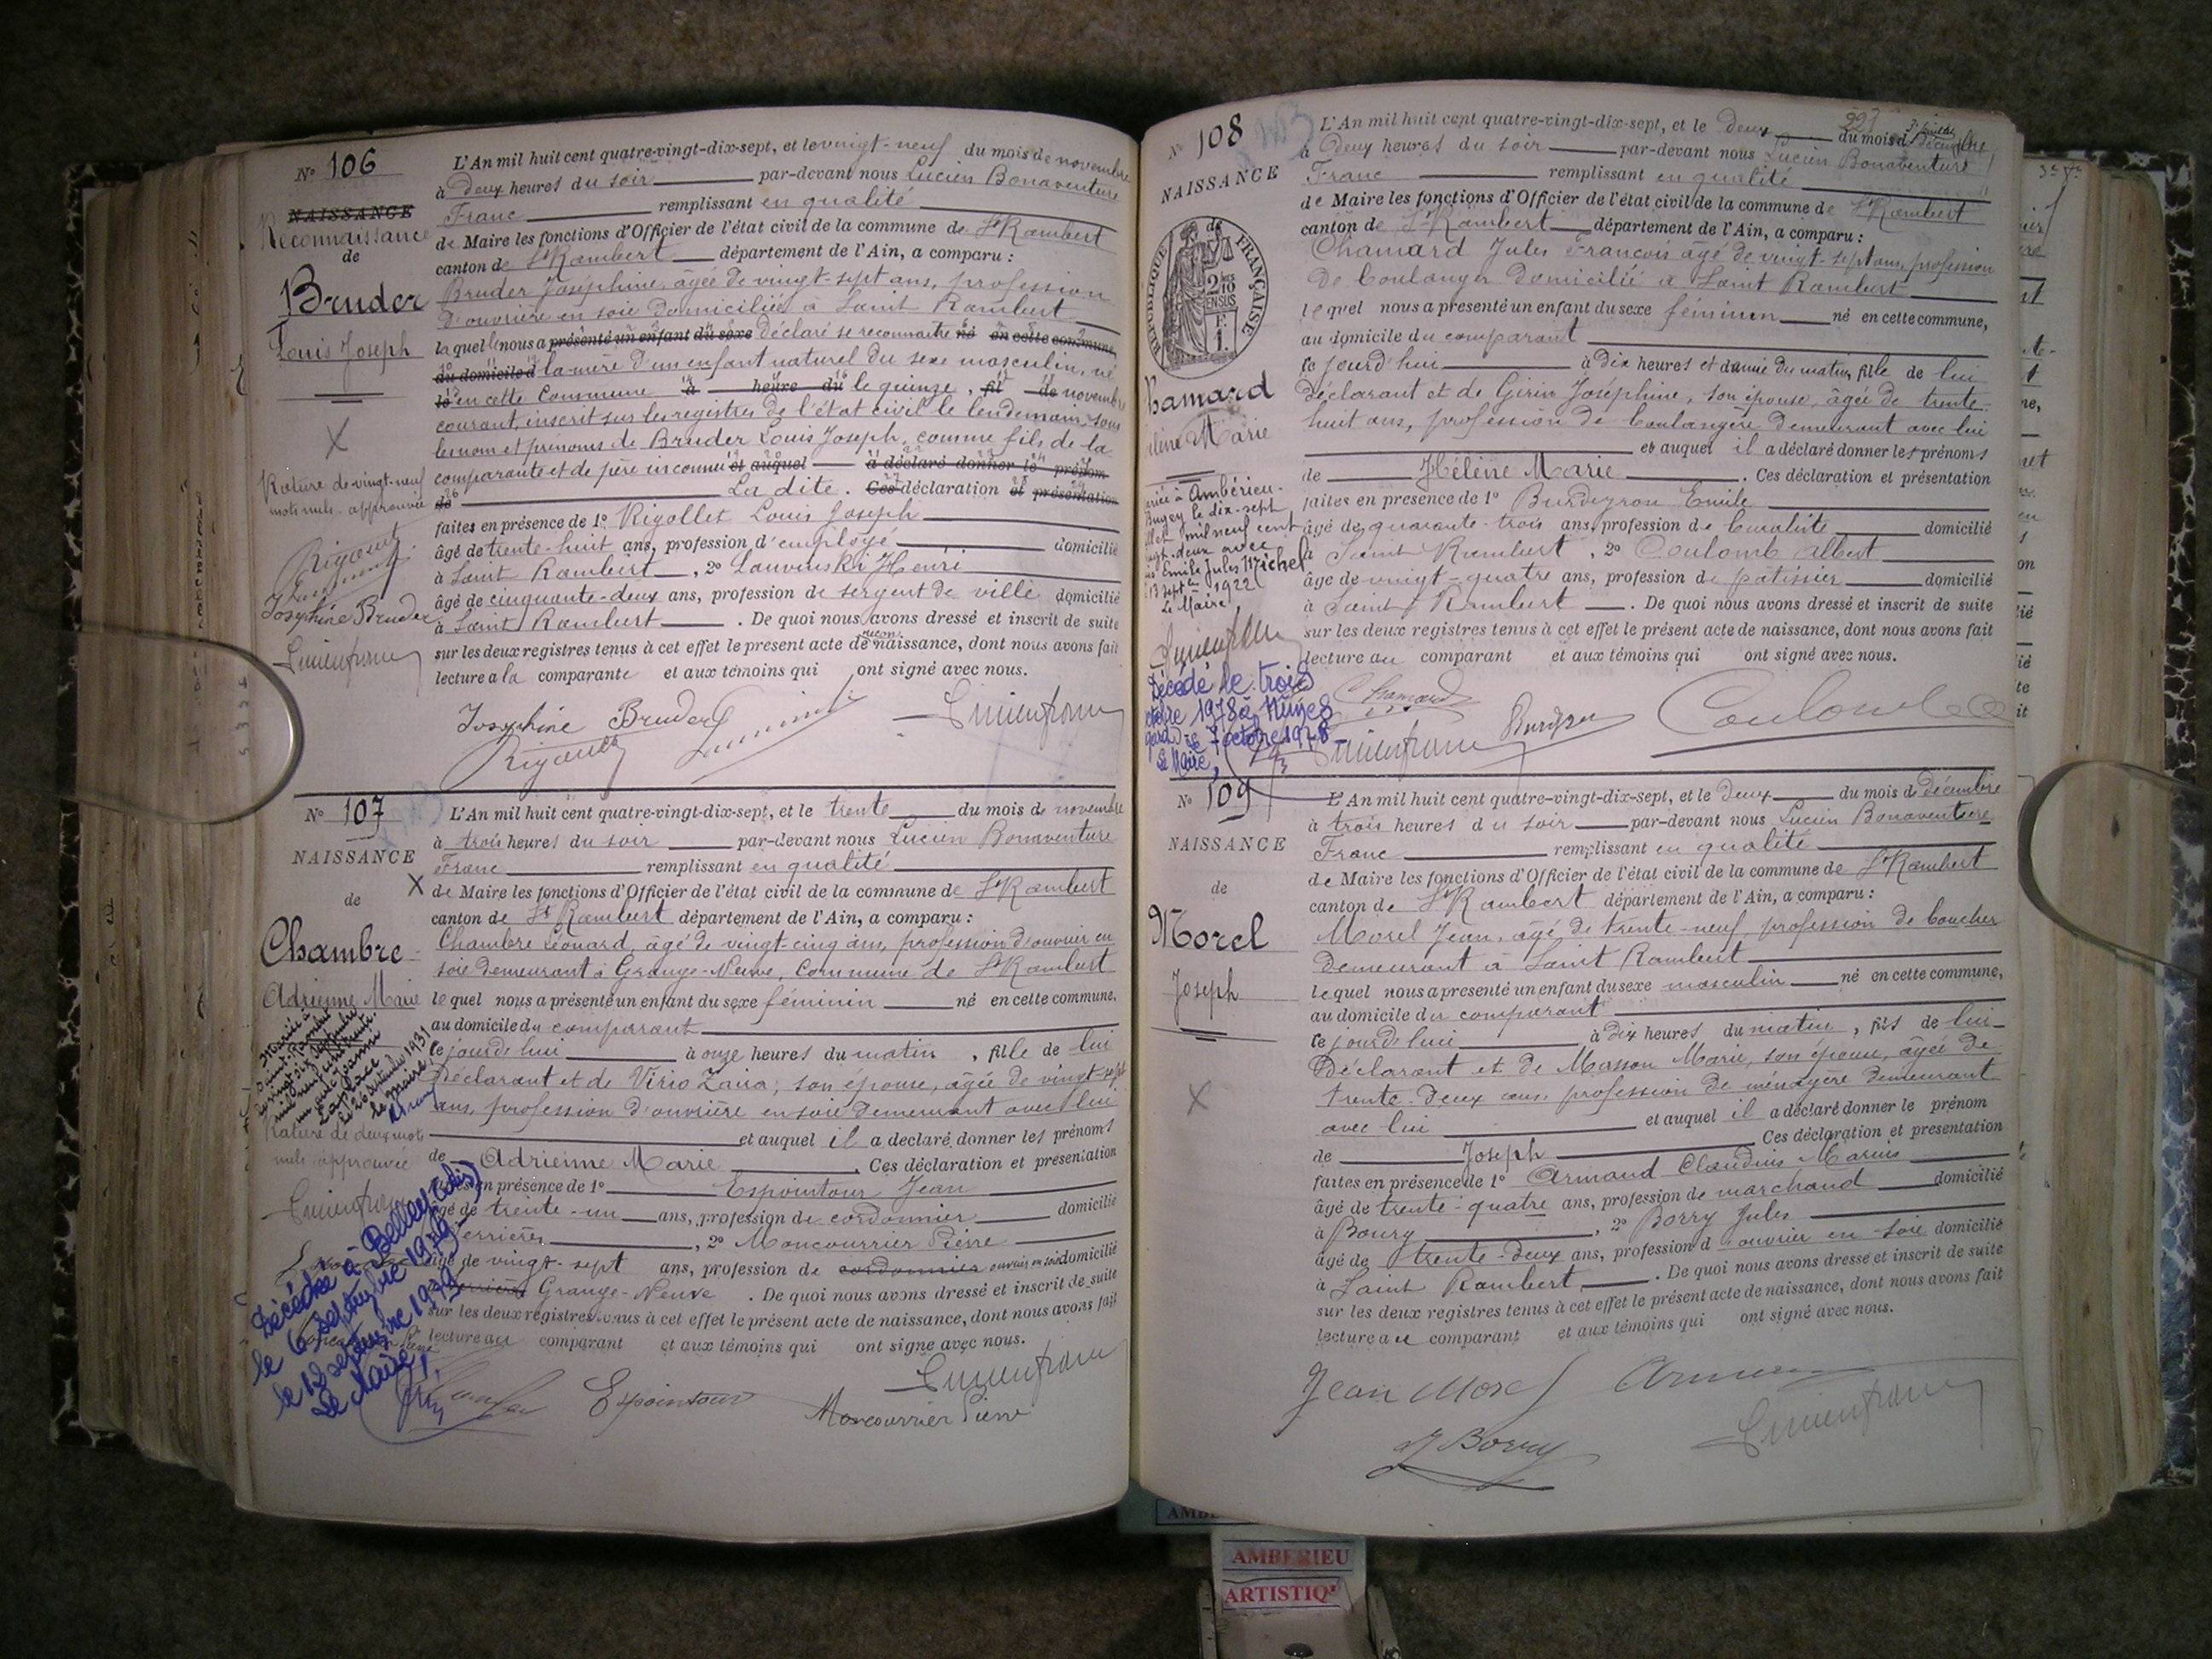 N° 106
NAISSANCE
Reconnaissance
de
Bruder
Louis Joseph
X
Rature de vingt-neuf
mots nuls approuvée
Josephine Bruder
L'An mil huit cent quatre-vingt-dix-sept, et le vingt-neuf du mois de novembre
à Deux heures du soir par-devant nous Lucien Bonaventure
Franc remplissant en qualité
de Maire les fonctions d'Officier de l'état civil de la commune de St Rambert
canton de St Rambert département de l'Ain, a comparu :
Bruder Joséphine, âgée de vingt-sept ans, profession
d'ouvrière en soie domiciliée à Saint Rambert
laquelle nous a présenté un enfant du sexe déclaré se reconnaitre né en cette commune,
au domicile d la mère d'un enfant naturel du sexe masculin, né
le en cette Commune à heure du le quinze, fil de novembre
courant, inscrit sur les registres de l'état civil le lendemain, sous
les nom et prénoms de Bruder Louis Joseph, comme fils de la
comparante et de père inconnu et auquel a déclaré donner le prénom
de La dite. Ces déclaration et présentation
faites en présence de 1° Rigollet Louis Joseph
âgé de trente-huit ans, profession d'employé domicilié
à Saint Rambert, 2° Lauvinski Henri
âgé de cinquante-deux ans, profession de sergent de ville domicilié
à Saint Rambert. De quoi nous avons dressé et inscrit de suite
sur les deux registres tenus à cet effet le présent acte de naissance, dont nous avons fait
lecture a la comparante et aux témoins qui ont signé avec nous.
Josephine Bruder
N° 107
NAISSANCE
de
X
Chambre
Adrienne Marie
Mariée à
Saint-Rambert
le vingt six septembre
mil neuf cent trente
un avec Joanni
Laplace
le 26 septembre 1931
Le Maire,
Rature de deux mots
nuls approuvée
Décédée à Belley (Ain)
le 6 septembre 1979
le 12 septembre 1979
Le Maire,
L'An mil huit cent quatre-vingt-dix-sept, et le trente du mois de novembre
à trois heures du soir par-devant nous Lucien Bonaventure
Franc remplissant en qualité
de Maire les fonctions d'Officier de l'état civil de la commune de St Rambert
canton de St Rambert département de l'Ain, a comparu :
Chambre Léonard, âgé de vingt-cinq ans, profession d'ouvrier en
soie demeurant à Grange-Neuve, Commune de St Rambert
lequel nous a présenté un enfant du sexe féminin né en cette commune,
au domicile du comparant
ce jourd'hui à onze heures du matin, fille de lui
Déclarant et de Virio Zaira, son épouse, âgée de vingt-sept
ans, profession d'ouvrière en soie demeurant avec lui
et auquel il a déclaré donner les prénoms
de Adrienne Marie. Ces déclaration et présentation
en présence de 1° Espointour Jean
âgé de trente-un ans, profession de cordonnier domicilié
Serrières, 2° Moncourrier Pierre
âgé de vingt-sept ans, profession de cordonnier ouvrier en soie domicilié
Serrières Grange-Neuve. De quoi nous avons dressé et inscrit de suite
sur les deux registres tenus à cet effet le présent acte de naissance, dont nous avons fait
lecture au comparant et aux témoins qui ont signé avec nous.
Espointour
Moncourrier Pierre
227
N° 108
NAISSANCE
RÉPUBLIQUE FRANÇAISE
2/10 EN SUS
F. 1.
hamard
lène Marie
ariée à Ambérieu-
Bugey le dix-sept
mil neuf cent
ngt-deux avec
Emile Jules Michel
13 sept 1922
Le Maire,
Décédé le trois
octobre 1978 à Nimes
gard) le 7 octobre 1978
Le Maire,
L'An mil huit cent quatre-vingt-dix-sept, et le Deux du mois d Décembre
à Deux heures du soir par-devant nous Lucien Bonaventure
Franc remplissant en qualité
de Maire les fonctions d'Officier de l'état civil de la commune de St Rambert
canton de St Rambert département de l'Ain, a comparu :
Chamard Jules François âgé de vingt-sept ans, profession
de boulanger domicilié à Saint Rambert
lequel nous a présenté un enfant du sexe féminin né en cette commune,
au domicile du comparant
ce jourd'hui à Dix heures et demie du matin, fille de lui
Déclarant et de Girin Joséphine, son épouse, âgée de trente-
huit ans, profession de boulangère demeurant avec lui
et auquel il a déclaré donner les prénoms
de Hélène Marie. Ces déclaration et présentation
faites en présence de 1° Burdeyron Emile
âgé de quarante-trois ans, profession de domicilié
à Saint Rambert, 2° Coulomb Albert
âgé de vingt-quatre ans, profession de pâtissier domicilié
à Saint Rambert. De quoi nous avons dressé et inscrit de suite
sur les deux registres tenus à cet effet le présent acte de naissance, dont nous avons fait
lecture au comparant et aux témoins qui ont signé avec nous.
Chamard
N° 109
NAISSANCE
de
Morel
Joseph
X
L'An mil huit cent quatre-vingt-dix-sept, et le Deux du mois de décembre
à trois heures du soir par-devant nous Lucien Bonaventure
Franc remplissant en qualité
de Maire les fonctions d'Officier de l'état civil de la commune de St Rambert
canton de St Rambert département de l'Ain, a comparu :
Morel Jean, âgé de trente-neuf, profession de boucher
demeurant à Saint Rambert
lequel nous a présenté un enfant du sexe masculin né en cette commune,
au domicile du comparant
ce jourd'hui à Dix heures du matin, fils de lui
Déclarant et de Masson Marie, son épouse, âgée de
trente-deux ans, profession de ménagère demeurant
avec lui et auquel il a déclaré donner le prénom
de Joseph Ces déclaration et présentation
faites en présence de 1° Armand Claudius Marius
âgé de trente-quatre ans, profession de marchand domicilié
à Bourg, 2° Borry Jules
âgé de trente-deux ans, profession d'ouvrier en soie domicilié
à Saint Rambert. De quoi nous avons dressé et inscrit de suite
sur les deux registres tenus à cet effet le présent acte de naissance, dont nous avons fait
lecture au comparant et aux témoins qui ont signé avec nous.
Jean Morel
J Borry
AMBERIEU
ARTISTIQ